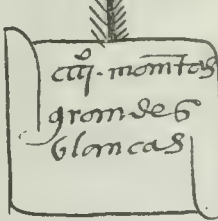 cccc°. mantas
grandes
blancas